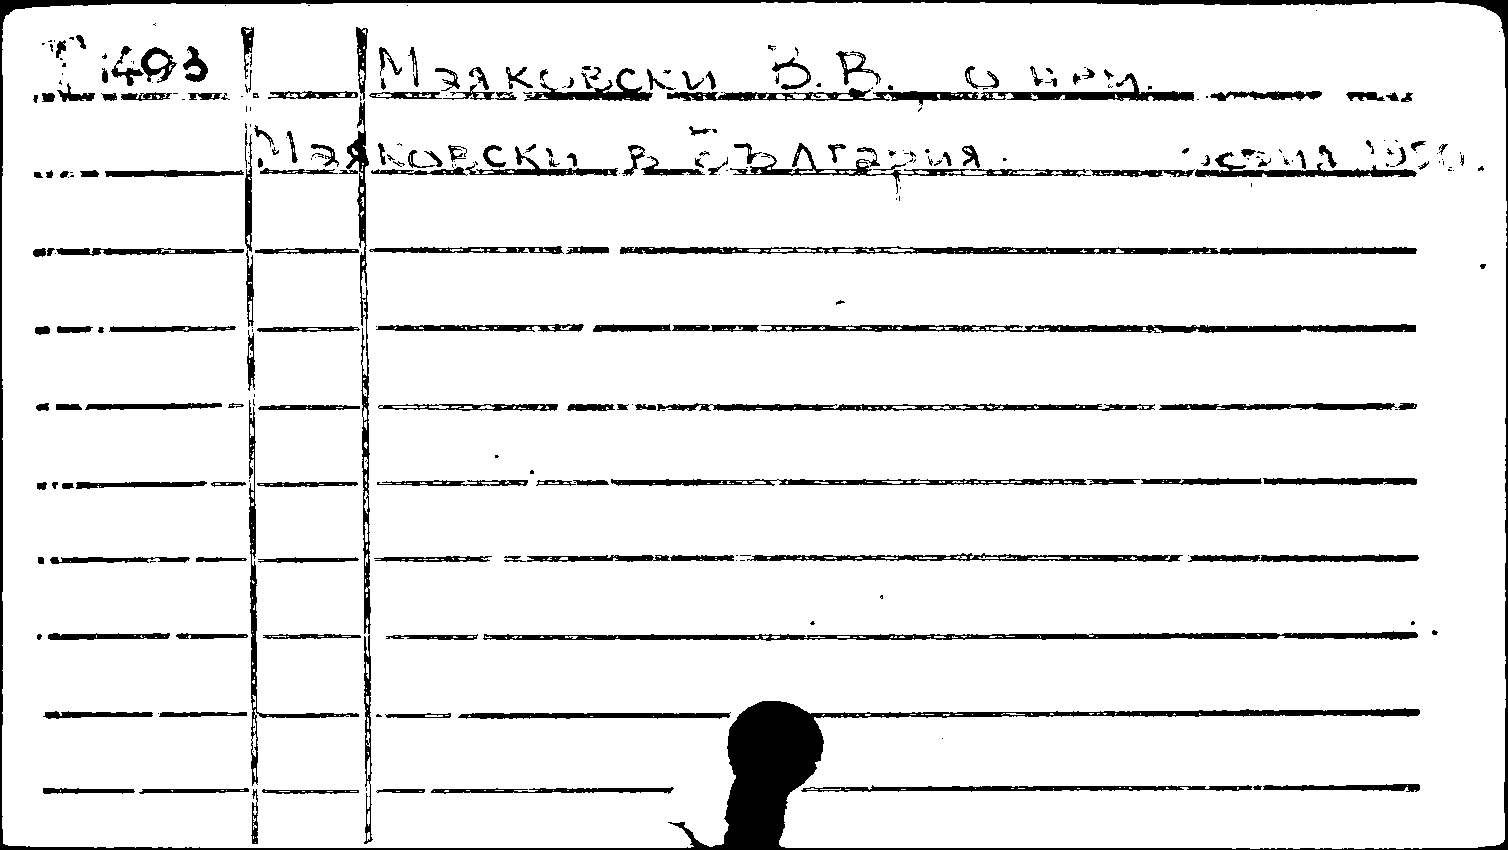 Т 1493 Маяковски В.В. о нем.
Маяковски в България. София 1950.